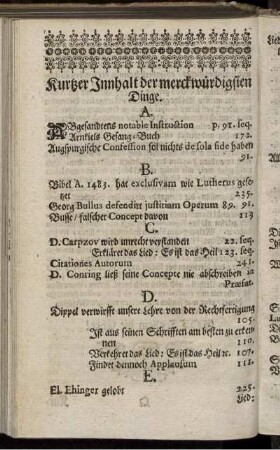 Kurtzer Innhalt der merckwürdigsten
Dinge.
A.
ABgesandtens notable Instruction p. 91. seq.
Arnkiels Gesang-Buch 172.
Augspurgische Confession sol nichts de sola fide haben
91.
B.
Bibel A. 1483. hat exclusivam wie Lutherus gese-
tzet 235.
Georg Bullus defendirt justitiam Operum 89. 91.
Busse / falscher Concept davon 113
C.
D. Carpzov wird unrecht verstanden 22. seq.
Erkläret das Lied: Es ist das Heil 123. seq.
Citationes Autorum 241.
D. Conring ließ seine Concepte nie abschreiben in
Præfat.
D.
Dippel verwirfft unsere Lehre von der Rechtfertigung
105.
Ist aus seinen Schrifften am besten zu erken-
nen 110.
Verkehret das Lied: Es ist das Heil ꝛc. 107.
Findet dennoch Applausum 118.
E.
El. Ehinger gelobt 225.
Lied: